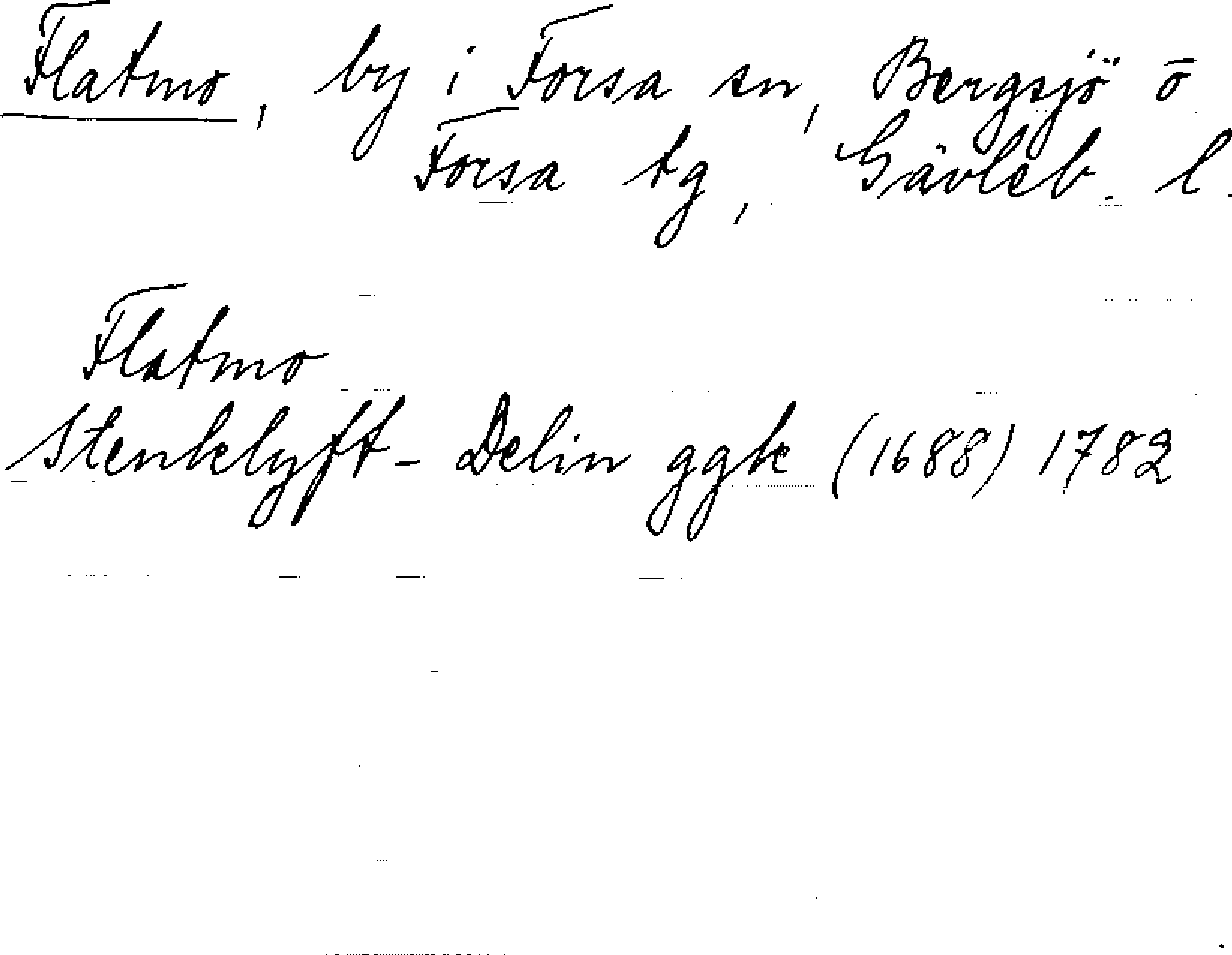 Flatmo, by i Forsa sn, Bergsjö o
Forsa tg, Gävleb. l.
Flatmo
Stenklyft - Delin ggk (1688) 1782